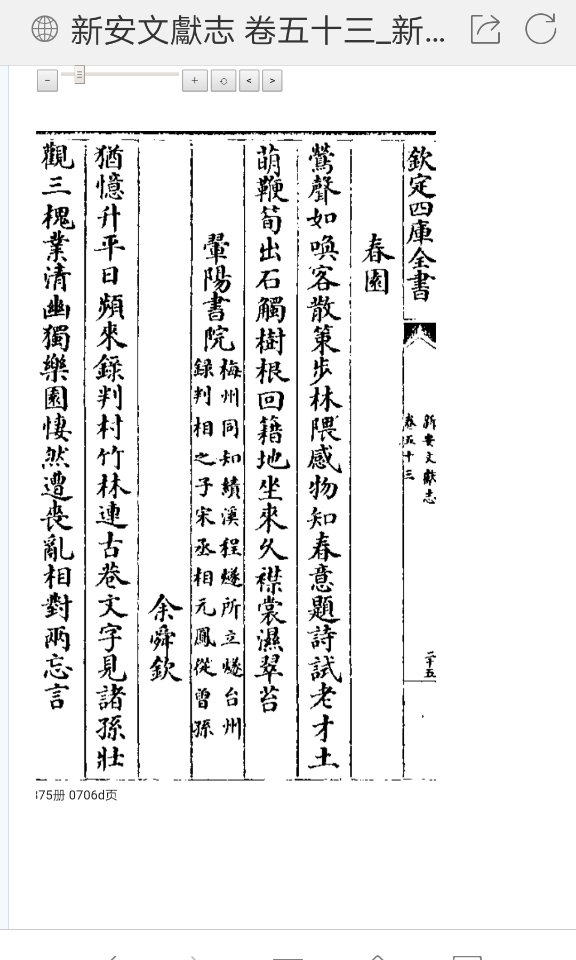 新安文獻志 卷五十三_新...
欽定四庫全書
新安文獻志
卷五十三
二十五
春園
鶯聲如喚客散策步林隈感物知春意題詩試老才土
萌鞭筍出石觸樹根回籍地坐來久襟裳濕翠苔
翬陽書院
梅州同知績溪程燧所立燧台州
録判相之子宋丞相元鳳從曾孫
余舜欽
猶憶升平日頻來録判村竹林連古巷文字見諸孫壯
觀三槐業清幽獨樂園悽然遭喪亂相對兩忘言
375册 0706d页